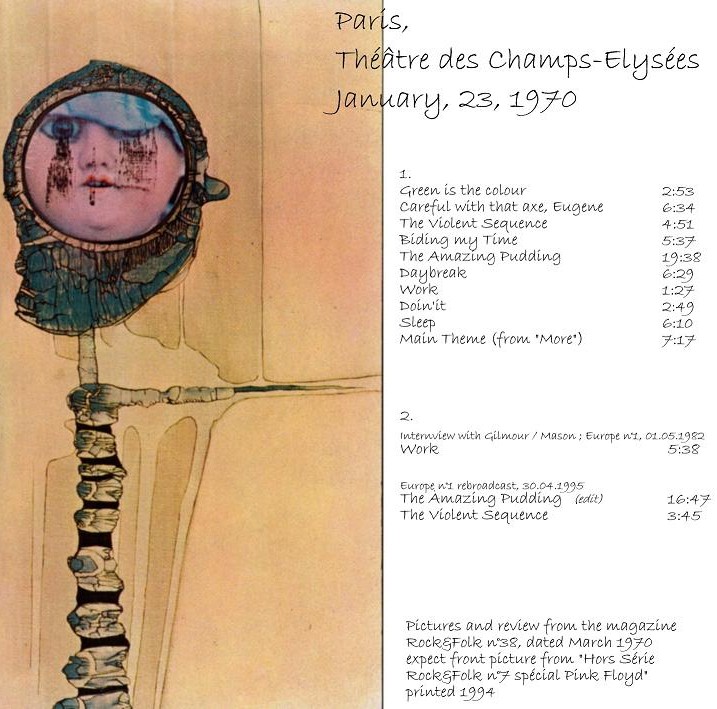 Paris,
Théâtre des Champs-Elysées
January, 23, 1970
1.
Green is the colour 2:53
Careful with that axe, Eugene 6:34
The Violent Sequence 4:51
Biding my Time 5:37
The Amazing Pudding 19:38
Daybreak 6:29
Work 1:27
Doin'it 2:49
Sleep 6:10
Main Theme (from "More") 7:17
2.
Internview with Gilmour / Mason ; Europe n°1, 01.05.1982
Work 5:38
Europe n°1 rebroadcast, 30.04.1995
The Amazing Pudding (edit) 16:47
The Violent Sequence 3:45
Pictures and review from the magazine
Rock&Folk n°38, dated March 1970
expect front picture from "Hors Série
Rock&Folk n°7 spécial Pink Floyd"
printed 1994